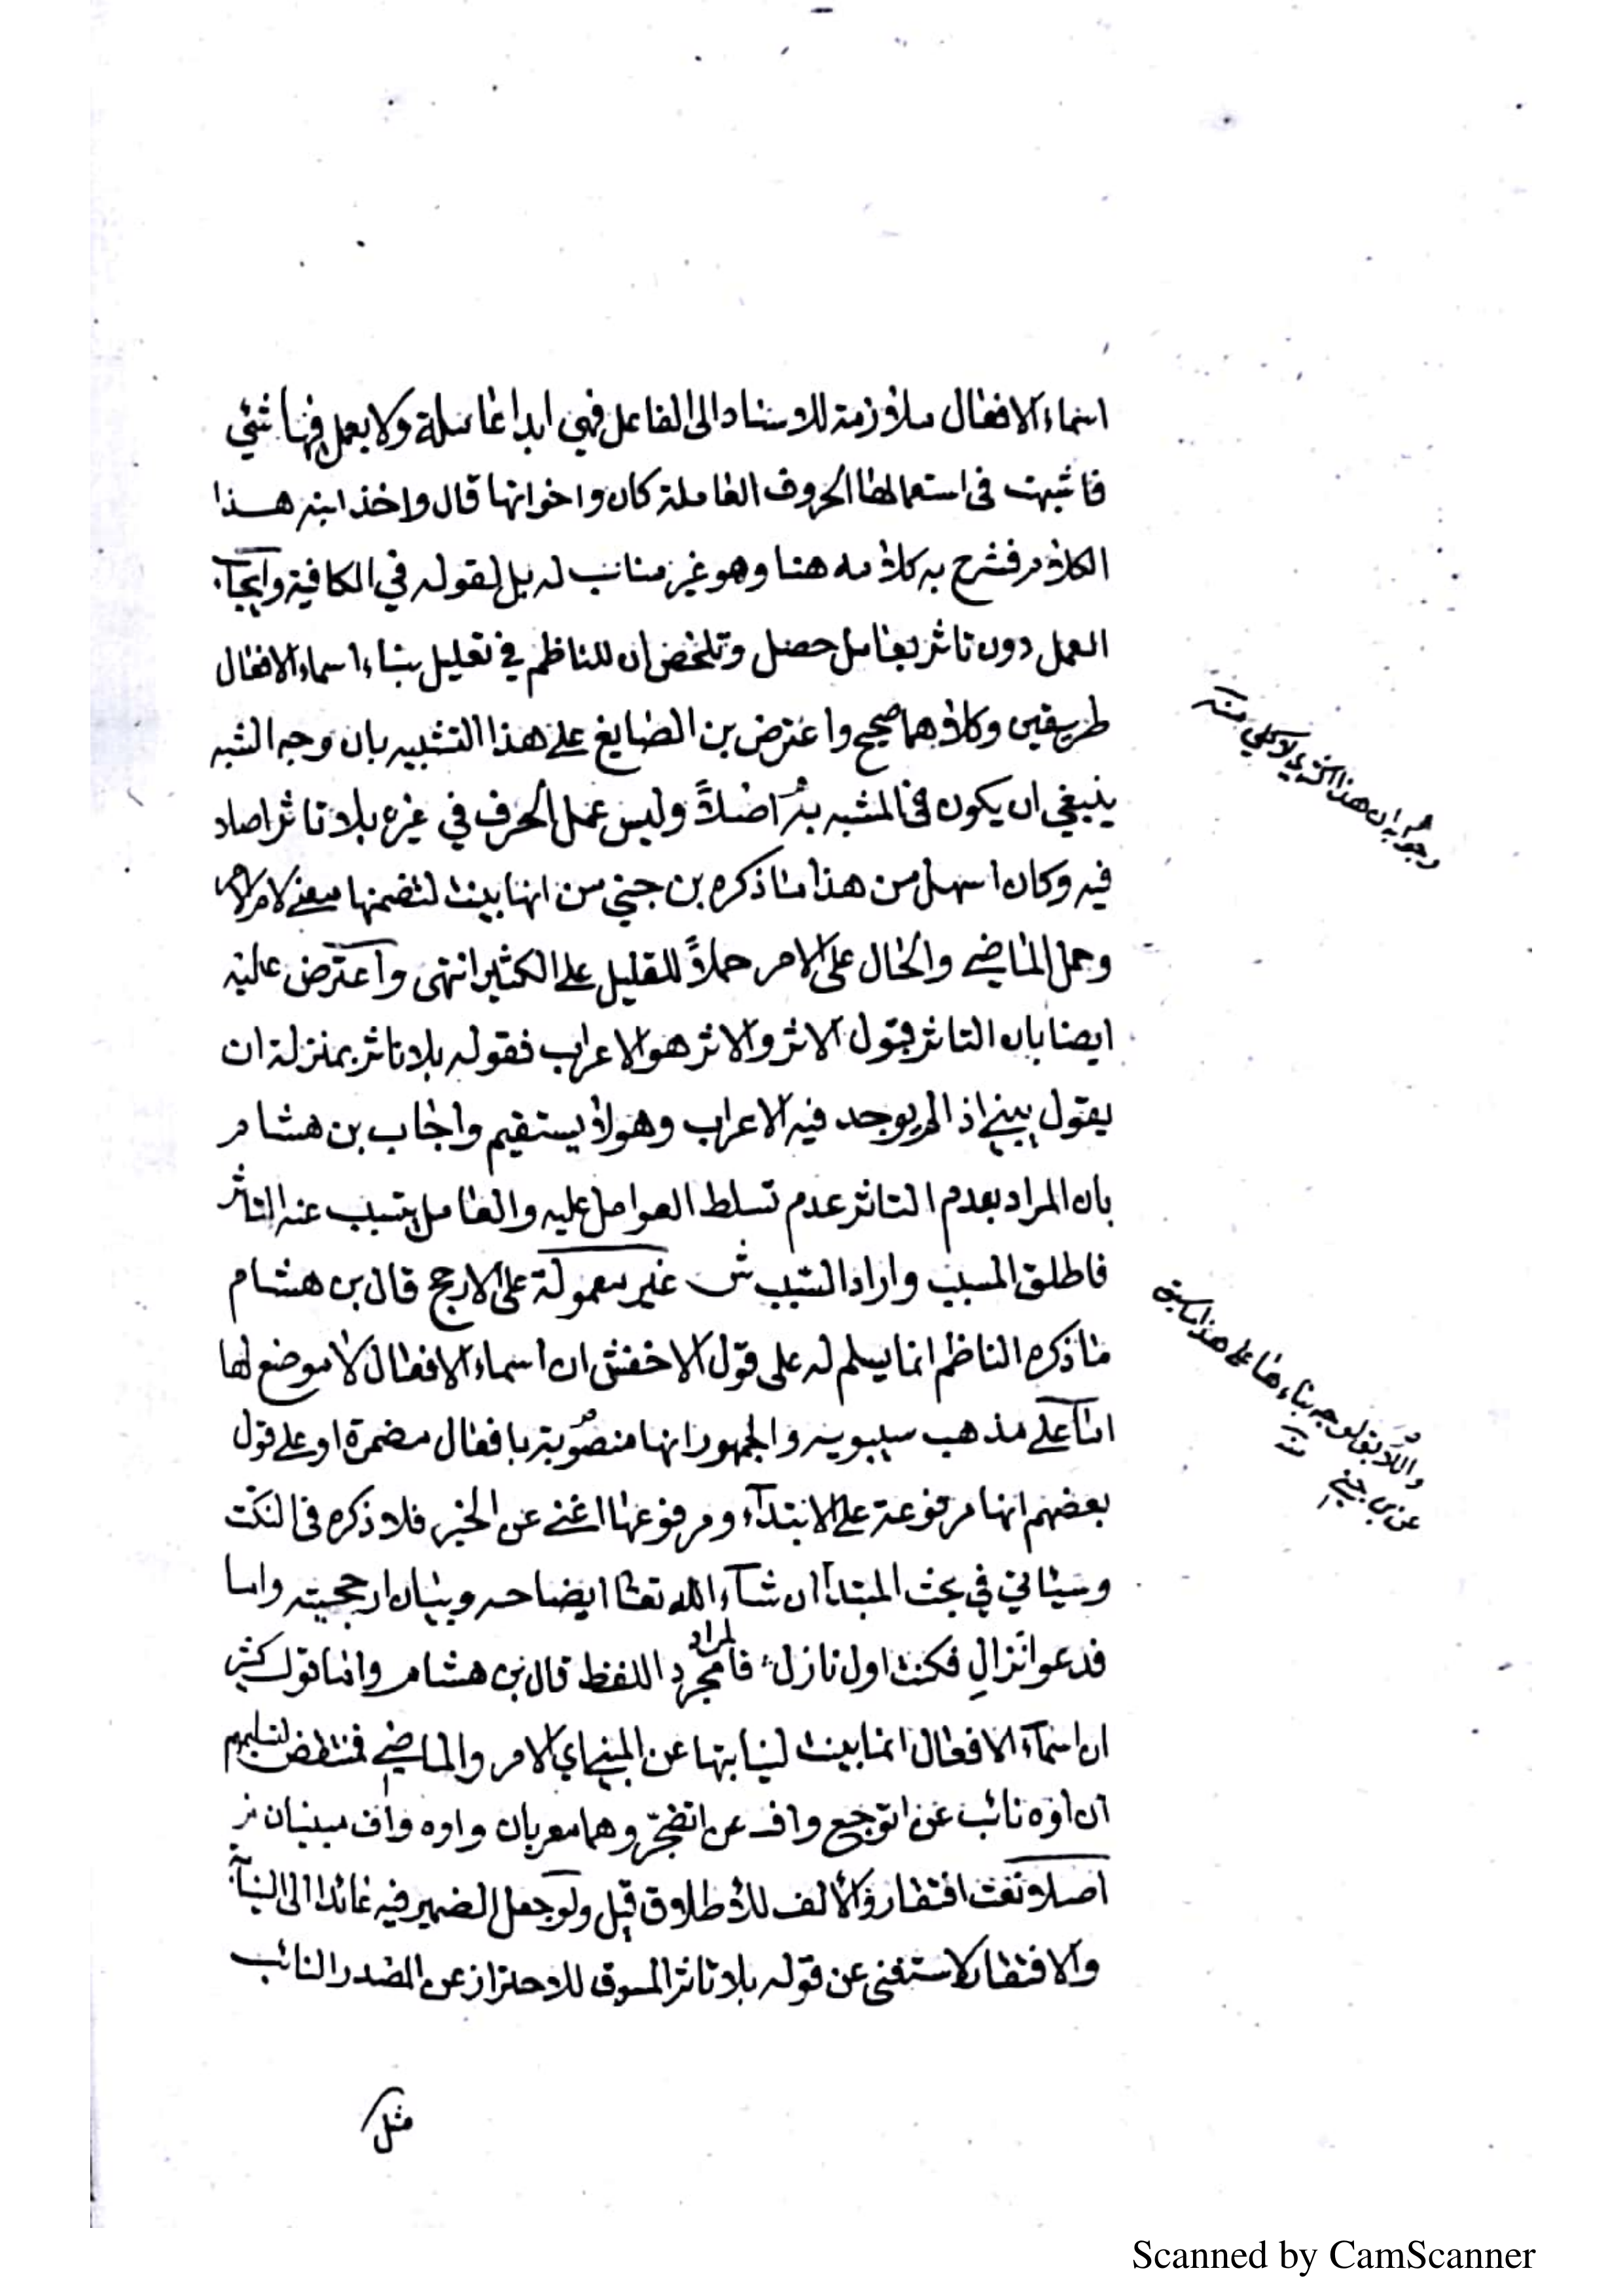 اسماء الافعال ملازمة للاسناد الى الفاعل فهي ابدا عاملة ولا يعمل فيها شئي
فاشبهت في استعمالها الحروف العاملة كان واخواتها قال واخذ ابنه هذا
الكلام فشرح به كلامه هنا وهو غير مناسب له بل لقوله في الكافية وايجاب
العمل دون تاثر بعامل حصل وتلخص ان للناظم في تعليل بناء اسماء الافعال
طريقين وكلاهما صحيح واعترض بن الضايغ على هذا التشبيه بان وجه الشبه
ينبغي ان يكون في المشبه به اصلاً وليس عمل الحرف في غيره بلا تاثر اصلا
فيه وكان اسهل من هذا ما ذكره بن جني من انها بينت لتضمنها معنى لام الامر
وحمل الماضي والحال على الامر حملاً للقليل على الكثير انتهى واعترض عليه
ايضا بان التاثر قبول الاثر والاثر هو الاعراب فقوله بلا تاثر بمنزلة ان
يقول يبنى اذ الم يوجد فيه الاعراب وهو لا يستقيم واجاب بن هشام
بان المراد بعدم التاثر عدم تسلط العوامل عليه والعامل يتسبب عنه التاثر
فاطلق المسبب واراد السبب ش غير معمولة على الارجح قال بن هشام
ما ذكره الناظم انما يسلم له على قول الاخفش ان اسماء الافعال لا موضع لها
اما على مذهب سيبويه والجمهور انها منصوبة بافعال مضمرة او على قول
بعضهم انها مرفوعة على الابتدآء ومرفوعها اغنى عن الخبر فلا ذكره في النكت
وسياتي في بحث المبتدا ان شآء الله تعا ايضاحه وبيان ارجحيته واما
فدعوا نزالِ فكنت اول نازل، فالمراد مجرد اللفظ قال بن هشام واما قول كثير
ان اسمآء الافعال انما بينت لنيابتها عن المبني اي الامر والماضي فمنتقض لتسليمهم
ان اوه نائب عن اتوجع واف عن اتضجّر وهما معربان واوه واف مبنيان نر
اصلا نعت افتقار والالف للاطلاق قيل ولو جعل الضمير فيه عائدا الى البنآء
والافتقار لاستغنى عن قوله بلا تاثر المسوق للاحتراز عن المصدر النائب
مثل
وجوابه ان هذا اكثري لا كلي منه
هنا على هذا ما سبق
عن بن جني منه
Scanned by CamScanner